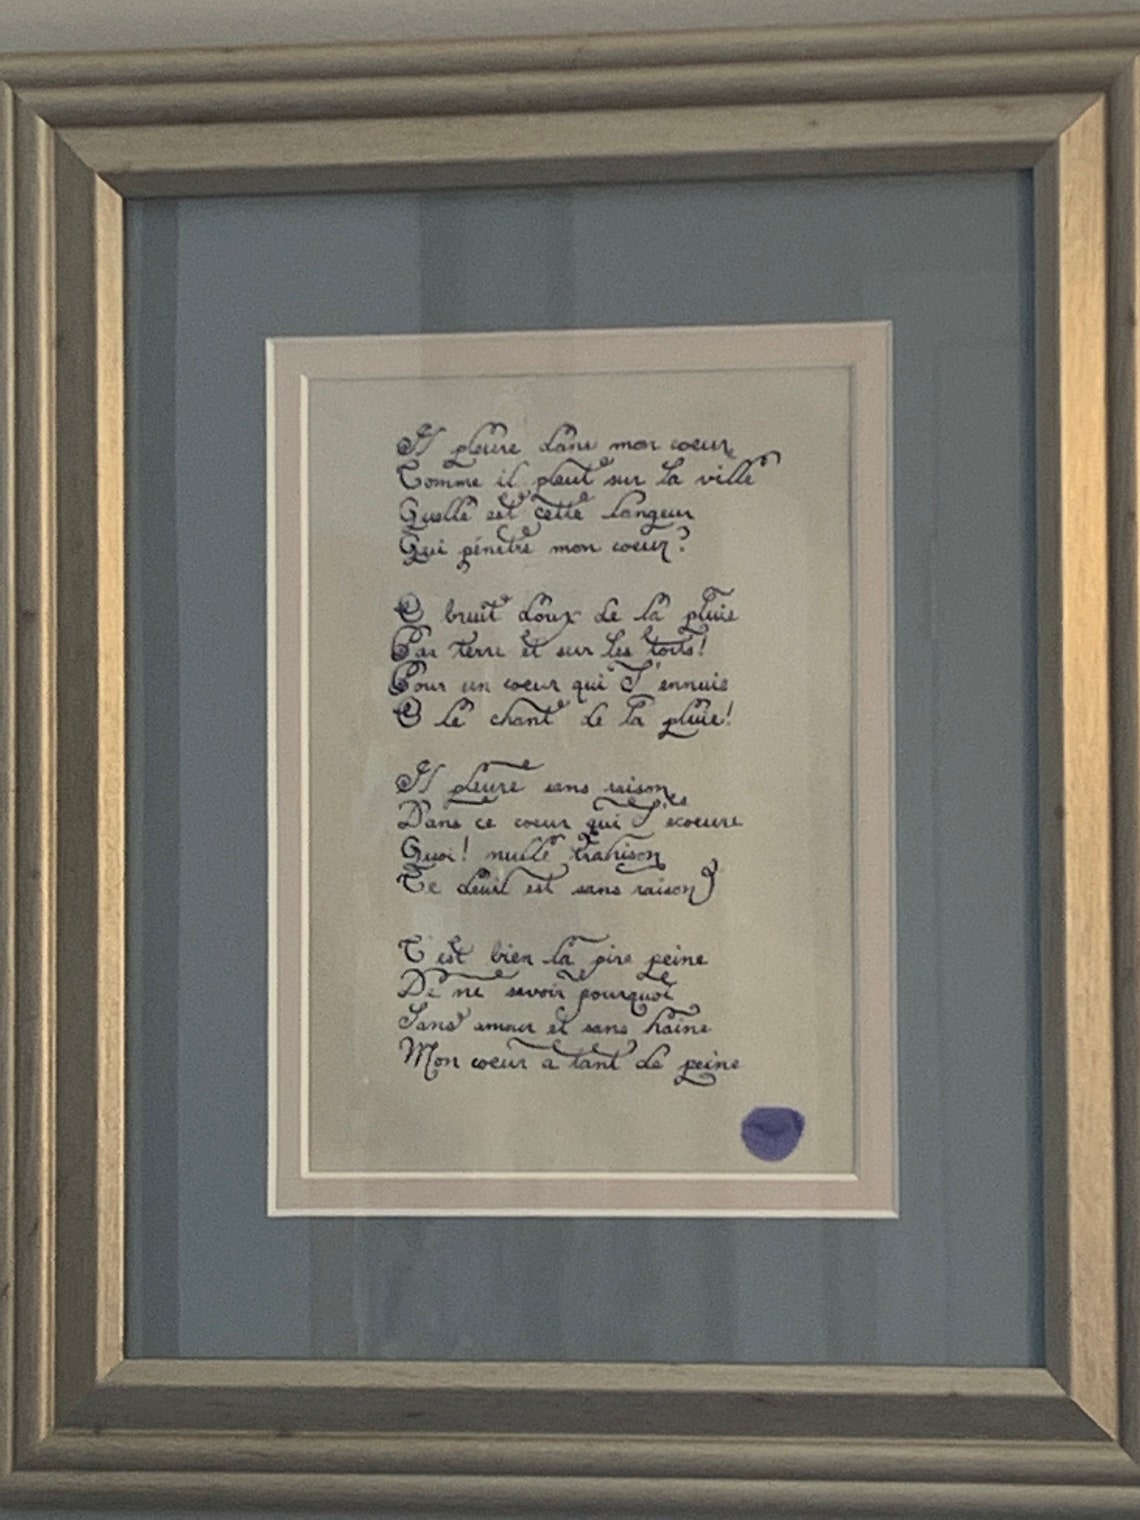 Il pleure dans mon coeur
Comme il pleut sur la ville
Quelle est cette langeur
Qui pénètre mon coeur?
O bruit doux de la pluie
Par terre et sur les toits!
Pour un coeur qui s'ennuie
O le chant de la pluie!
Il pleure sans raison
Dans ce coeur qui s'ecoeure
Quoi! nulle trahison
Ce deuil est sans raison
C'est bien la pire peine
De ne savoir pourquoi
Sans amour et sans haine
Mon coeur a tant de peine